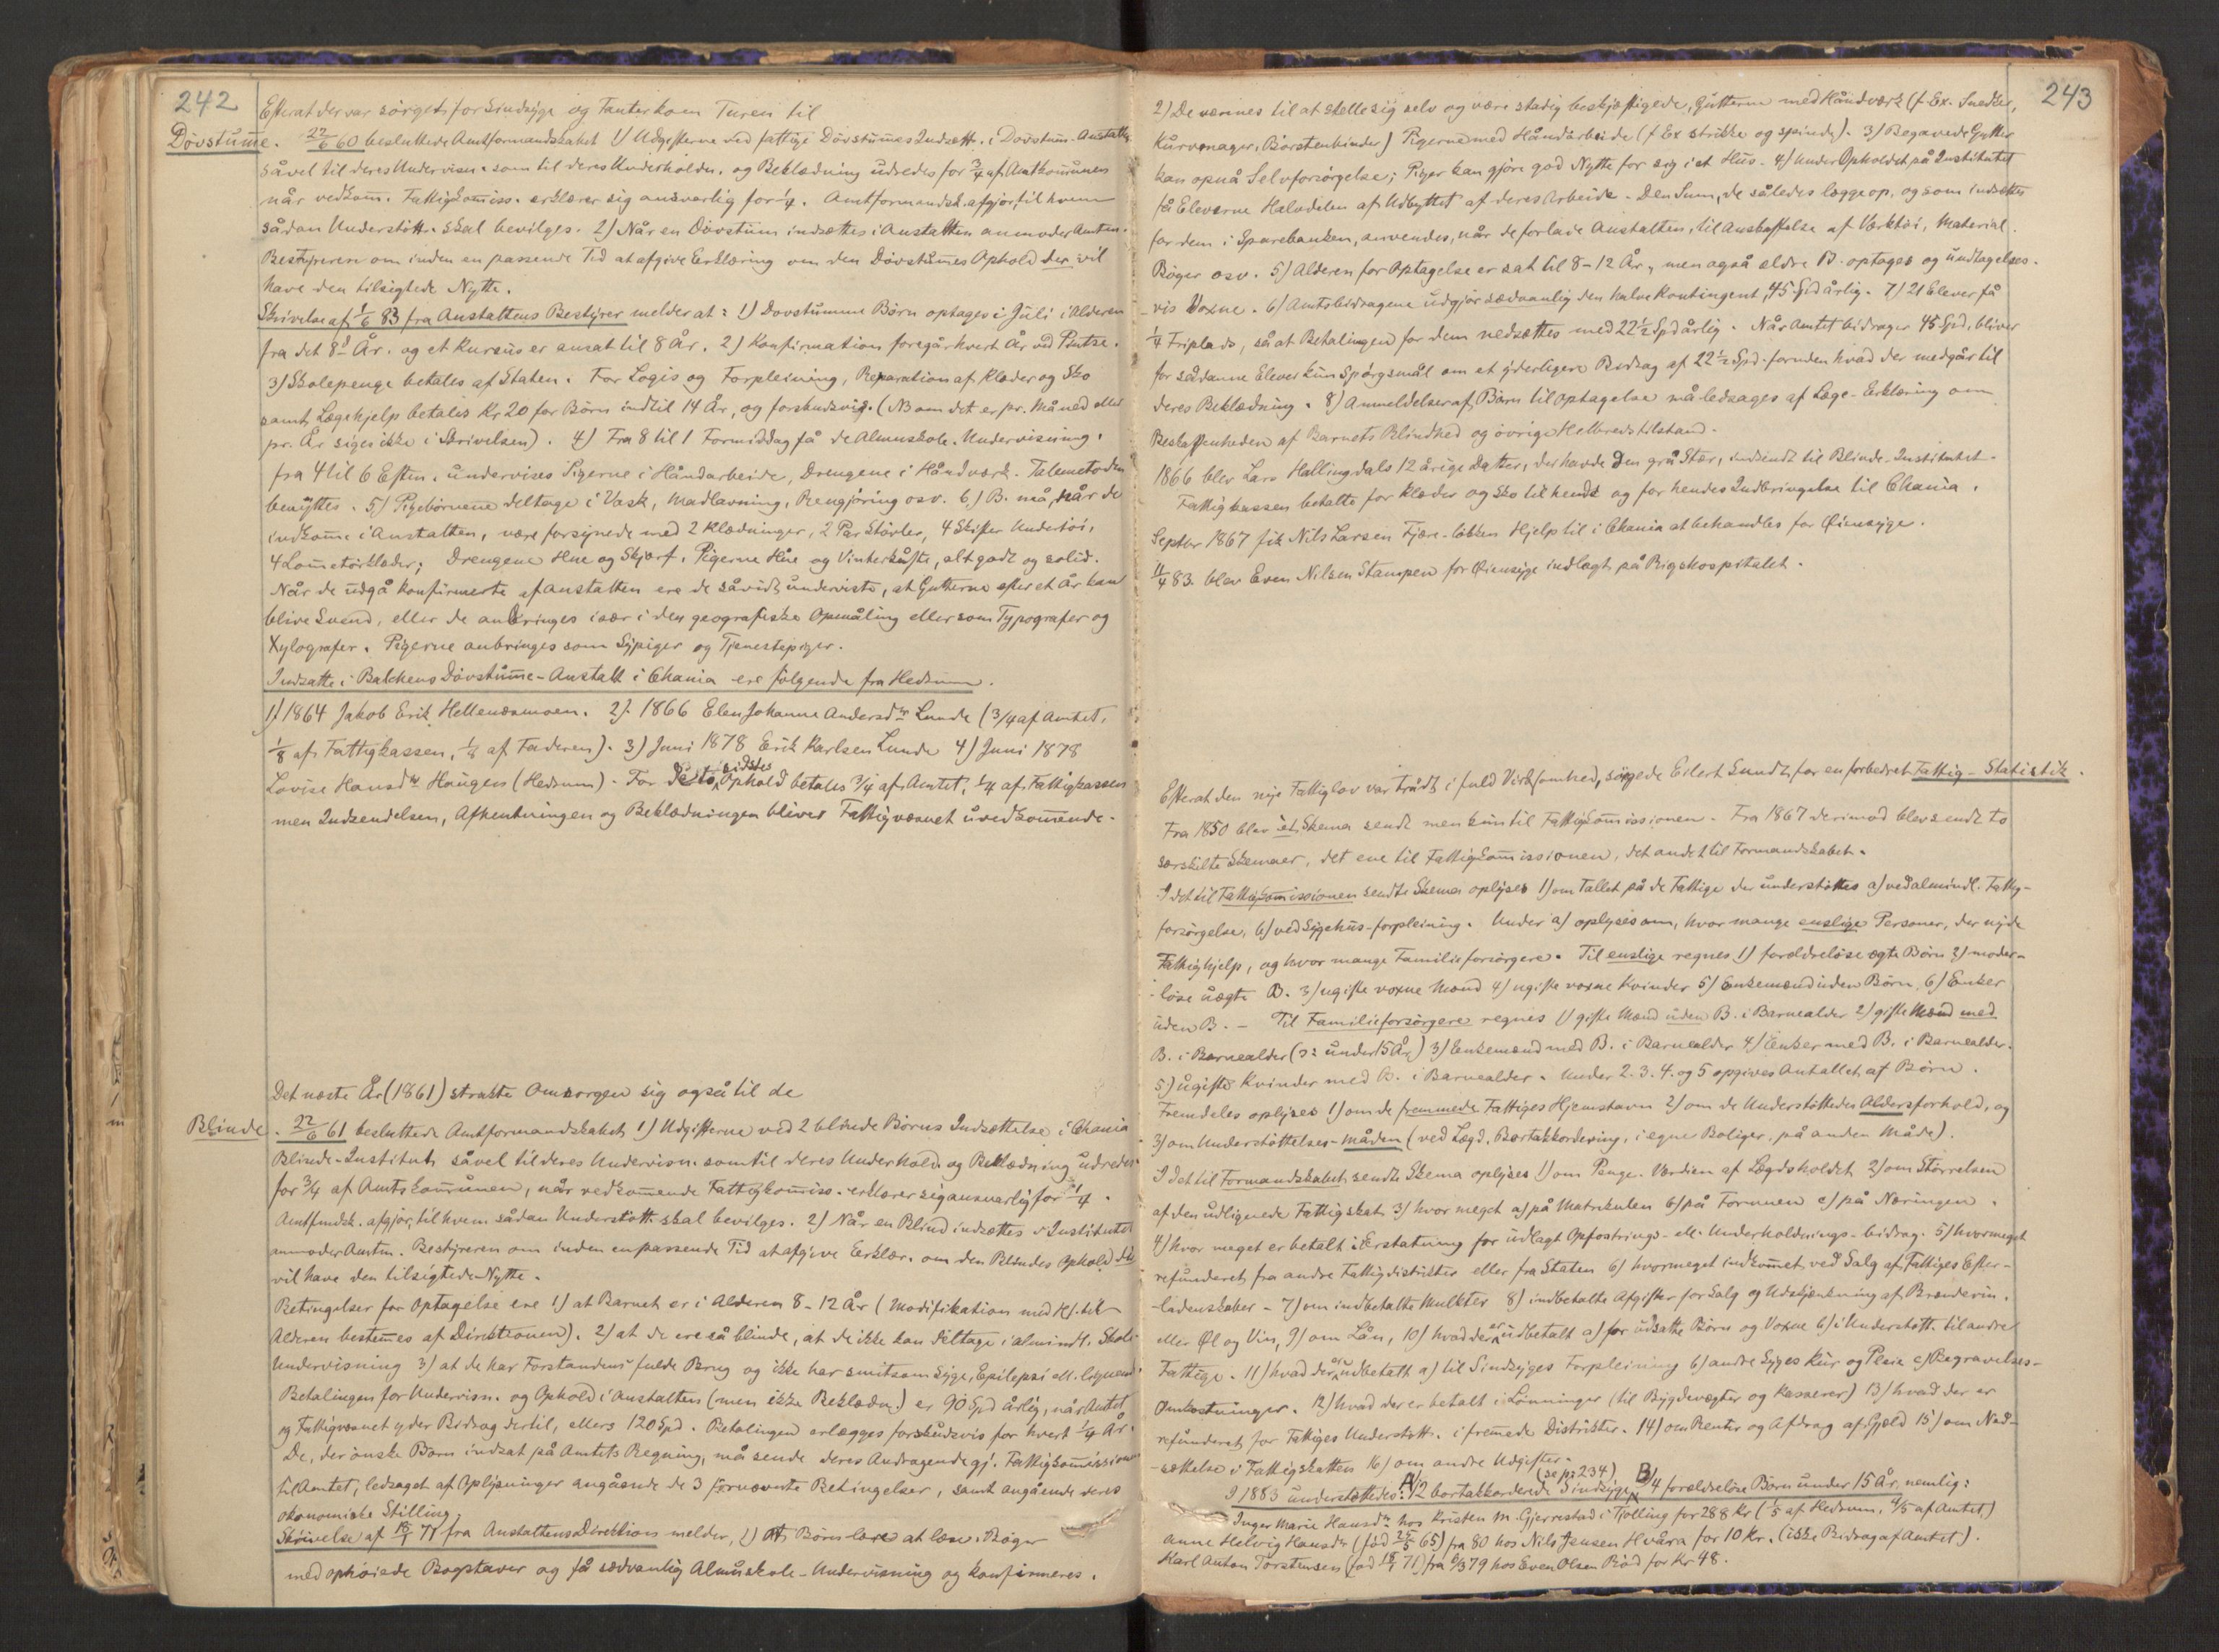 242
Efterat der var sörget for Sindsyge og Fanter kom Turen til
Dövstum̅e. 22/6 60 besluttede Amtformandskabet 1) Udgifterne ved fattige Dövstum̅es Indsætt. i Dövstum-Anstalten
såvel til deres Undervisn. som til deres Underholdn. og Beklædning udredes for 3/4 af Amtkom̅unen
når vedkom̅. Fattigkom̅iss. erklærer sig ansvarlig for 1/4. Amtformandsk. afgjör, til hvem
sådan Understött. skal bevilges. 2) Når en Dövstum indsættes i Anstalten anmoder Amtm.
Bestyreren om inden en passende Tid at afgive Erklæring om den Dövstum̅es Ophold der vil
have den tilsigtede Nytte.
Skrivelse af 1/6 83 fra Anstaltens Bestyrer melder at: 1) Dovstumme Börn optages i Juli i Alderen
fra det 8de År. og et Kursus er ansat til 8 År. 2) Konfirmation foregår hvert År ved Pintse.
3) Skolepenge betales af Staten. For Logis og Forpleining, Reparation af Klæder og Sko
samt Lægehjelp betales Kr 20 for Börn indtil 14 År, og forskudsvis. (NB om det er pr. Måned eller
pr. År siges ikke i Skrivelsen). 4) Fra 8 til 1 Formiddag få de Almuskole-Undervisning.
fra 4 til 6 Eftm. undervises Pigerne i Håndarbeide, Drengene i Håndværk. Talemetoden
benyttes. 5) Pigebörnene deltage i Vask, Madlavning, Rengjöring osv. 6) B. må, når de
indkom̅e i Anstalten, være forsynede med 2 Klædninger, 2 Par Stövler, 4 Skifter Undertöi,
4 Lom̅etörklæder; Drengene Hue og Skjærf, Pigerne Hue og Vinterkåpe, alt godt og solid.
Når de udgå konfirmerte af Anstalten ere de såvidt underviste, at Gutterne efter et År kan
blive Svend, eller de anbringes især i den geografiske Opmåling eller som Typografer og
Xylografer. Pigerne anbringes som Sypiger og Tjenestepiger.
Indsatte i Balchens Dövstum̅e-Anstalt i Chania ere fölgende fra Hedrum.
1) 1864 Jakob Erik. Hellenæsmoen. 2) 1866 Elen Johanne Andersdr Lunde (3/4 af Amtet,
1/8 af Fattigkassen, 1/8 af Faderen). 3) Juni 1878 Erik Karlsen Lunde 4) Juni 1878
Lovise Hansdr Haugen (Hedrum). For De to sidstes Ophold betales 3/4 af Amtet, 1/4 af Fattigkassen
men Indsendelsen, Afhentningen og Beklædningen bliver Fattigvæsnet uvedkom̅ende.
Det næste År (1861) strakte Omsorgen sig også til de
Blinde. 22/6 61 besluttede Amtformandskabet 1) Udgifterne ved 2 blinde Börns Indsættelse i Chania
Blinde-Institut såvel til deres Undervisn. som til deres Underhold. og Beklædning udredes
for 3/4 af Amtskom̅unen, når vedkom̅ende Fattigkom̅iss. erklærer sig ansvarlig for 1/4.
Amtfmdsk. afgjör, til hvem sådan Understött. skal bevilges. 2) Når en Blind indsættes i Institutet
anmoder Amtm. Bestyreren om inden en passende Tid at afgive Erklær. om den Blindes Ophold der
vil have den tilsigtede Nytte.
Betingelser for Optagelse ere 1) at Barnet er i Alderen 8-12 År (Modifikation med H. til
Alderen bestem̅es af Direktionen). 2) at de ere så blinde, at de ikke kan deltage i almindl. Skole
Undervisning 3) at de har Forstandens fulde Brug og ikke har smitsom Syge, Epilepsi ell. lignend.
Betalingen for Undervisn. og Ophold i Anstalten (men ikke Beklædn.) er 90 Spd årlig, når Amtet
og Fattigvæsnet yder Bidrag dertil, ellers 120 Spd. Betalingen erlægges forskudsvis for hvert 1/4 År.
De, der önske Börn indsat på Amtets Regning, må sende deres Andragende gj. Fattigkom̅issionen
til Amtet, ledsaget af Oplysninger angående de 3 förnævnte Betingelser, samt angående deres
ökonomiske Stilling
Skrivelse af 18/1 71 fra Anstaltens Direktion melder, 1) At Börn lære at læse i Böger
med ophöiede Bogstaver og få sædvanlig Almuskole-Undervisning og konfirmeres.
243
2) De vænnes til at stelle sig selv og være stadig beskjæftigede, Gutterne med Håndværk (f. Ex. Snedker,
Kurvmager, Börstenbinder) Pigerne med Håndarbeide (f Ex strikke og spinde). 3) Begavede Gutter
kan opnå Selvforsörgelse; Piger kan gjöre god Nytte for sig i et Hus. 4) Under Opholdet på Institutet
få Eleverne Halvdelen af Udbyttet af deres Arbeide. Den Sum, de således lægge op, og som indsættes
for dem i Sparebanken, anvendes, når de forlade Anstalten, til Anskaffelse af Værktöi, Material.
Böger osv. 5) Alderen for Optagelse er sat til 8-12 År, men også ældre B. optages og undtagelses-
-vis Voxne. 6) Amtsbidragene udgjör sædvanlig den halve Kontingent, 45 Spd årlig. 7) 21 Elever få
1/4 Friplads, så at Betalingen for dem nedsættes med 22 1/2 Spd årlig. Når Amtet bidrager 45 Spd, bliver
for sådanne Elever kun Spörgsmål om et yderligere Bidrag af 22 1/2 Spd. foruden hvad der medgår til
deres Beklædning. 8) Anmeldelser af Börn til Optagelse må ledsages af Læge-Erklæring om
Beskaffenheden af Barnets Blindhed og övrige Helbredstilstand.
1866 blev Lars Hallingdals 12 årige Datter, der havde Den grå Stær, indsendt til Blinde-Institutet.
Fattigkassen betalte for Klæder og Sko til hende og for hendes Indbringelse til Chania.
Septbr 1867 fik Nils Larsen Fjære-løkken Hjelp til i Chania at behandles for Øiensyge.
11/4 83. blev Even Nilsen Stampen for Øiensyge indlagt på Rigshospitalet.
Efterat den nye Fattiglov var trådt i fuld Virksomhed, sörgede Eilert Sundt for en forbedret Fattig-Statistik.
Fra 1850 blev et Skema sendt men kun til Fattigkom̅issionen. Fra 1867 derimod blev sendt to
særskilte Skemaer, det ene til Fattigkom̅issionen, det andet til Formandskabet.
I det til Fattigkom̅issionen sendte Skema oplyses 1) om Tallet på de Fattige der understöttes a) ved almindl. Fattig-
forsörgelse, b) ved Sygehus-forpleining. Under a) oplyses om, hvor mange enslige Personer, der nyde
Fattighjelp, og hvor mange Familieforsörgere. Til enslige regnes 1) forældrelöse ægte Börn 2) moder-
-löse uægte B. 3) ugifte voxne Mænd 4) ugifte voxne Kvinder 5) Enkemænd uden Börn, 6) Enker
uden B. - Til Familieforsörgere regnes 1) gifte Mænd uden B. i Barnealder 2) gifte Mænd med
B. i Barnealder (ɔ: under 15 År) 3) Enkemænd med B. i Barnealder 4) Enker med B. i Barnealder.
5) ugifte Kvinder med B. i Barnealder. Under 2. 3. 4. og 5 opgives Antallet af Börn.
Fremdeles oplyses 1) om de fremmede Fattiges Hjemstavn 2) om de Understöttedes Aldersforhold, og
3) om Understöttelses-måden (ved Lægd, Bortakkordering, i egne Boliger, på anden Måde).
I det til Formandskabet sendte Skema oplyses 1) om Penge-Værdien af Lægdsholdet 2) om Störrelsen
af den udlignede Fattigskat 3) hvor meget a) på Matrikulen b) på Formuen c) på Næringen.
4) hvor meget er betalt i Erstatning for udlagt Opfostrings- ell. Underholdnings-bidrag. 5) hvormeget
refunderet fra andre Fattigdistrikter eller fra Staten 6) hvormeget indkom̅et ved Salg af Fattiges Efter-
-ladenskaber - 7) om indbetalte Mulkter 8) indbetalte Afgifter for Salg og Udskjænkning af Brændevin.
eller Øl og Vin, 9) om Lån, 10) hvad der er udbetalt a) for udsatte Börn og Voxne b) i Understött. til andre
Fattige. 11) hvad der er udbetalt a) til Sindsyges Forpleining b) andre Syges Kur og Pleie c) Begravelses-
Omkostninger. 12) hvad der er betalt i Lönninger (til Bygdevægter og Kasserer) 13) hvad der er
refunderet for Fattiges Understött. i frem̅ede Distrikter. 14) om Renter og Afdrag af Gjeld 15) om Ned-
-sættelse i Fattigskatten 16) om andre Udgifter.
I 1883 understöttedes: A/ 2 bortakkorderede Sindsyge (se p: 234) B/ 4 forældrelöse Börn under 15 År, nemlig:
Inger Marie Hansdr hos Kristen M. Gjerrestad i Tjölling for 288 Kr (1/5 af Hedrum, 4/5 af Amtet,)
Anne Helvig Hansdr (fød 25/5 65) fra 80 hos Nils Jensen Hvåra for 10 Kr. (ikke Bidrag af Amtet).
Karl Anton Torstensen (fød 18/1 71) fra 6/3 79 hos Even Olsen Röd for Kr 48.